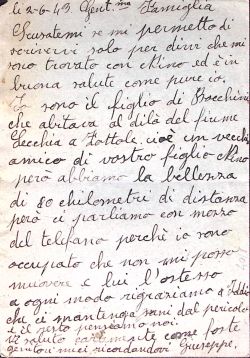 li 2-6-43 Gent.ma Famiglia
Scusatemi se mi permetto di
scrivervi solo per dirvi che mi
sono trovato con Nino ed è in
buona salute come pure io.
Io sono il figlio di Bocchini
che abitava al di là del fiume
Secchia a cioè un vecchio
amico di vostro figlio Nino
però abbiamo la bellezza
di 80 chilometri di distanza
però ci parliamo con mezzo
del telefano perchè io sono
occupato che non mi posso
muovere e lui l'ostesso
a ogni modo rigraziamo a Iddio
che ci mantenga sani dal pericolo
e il resto pensiamo noi.
Vi saluto caramente come forte
genitori miei ricordandovi Giuseppe,